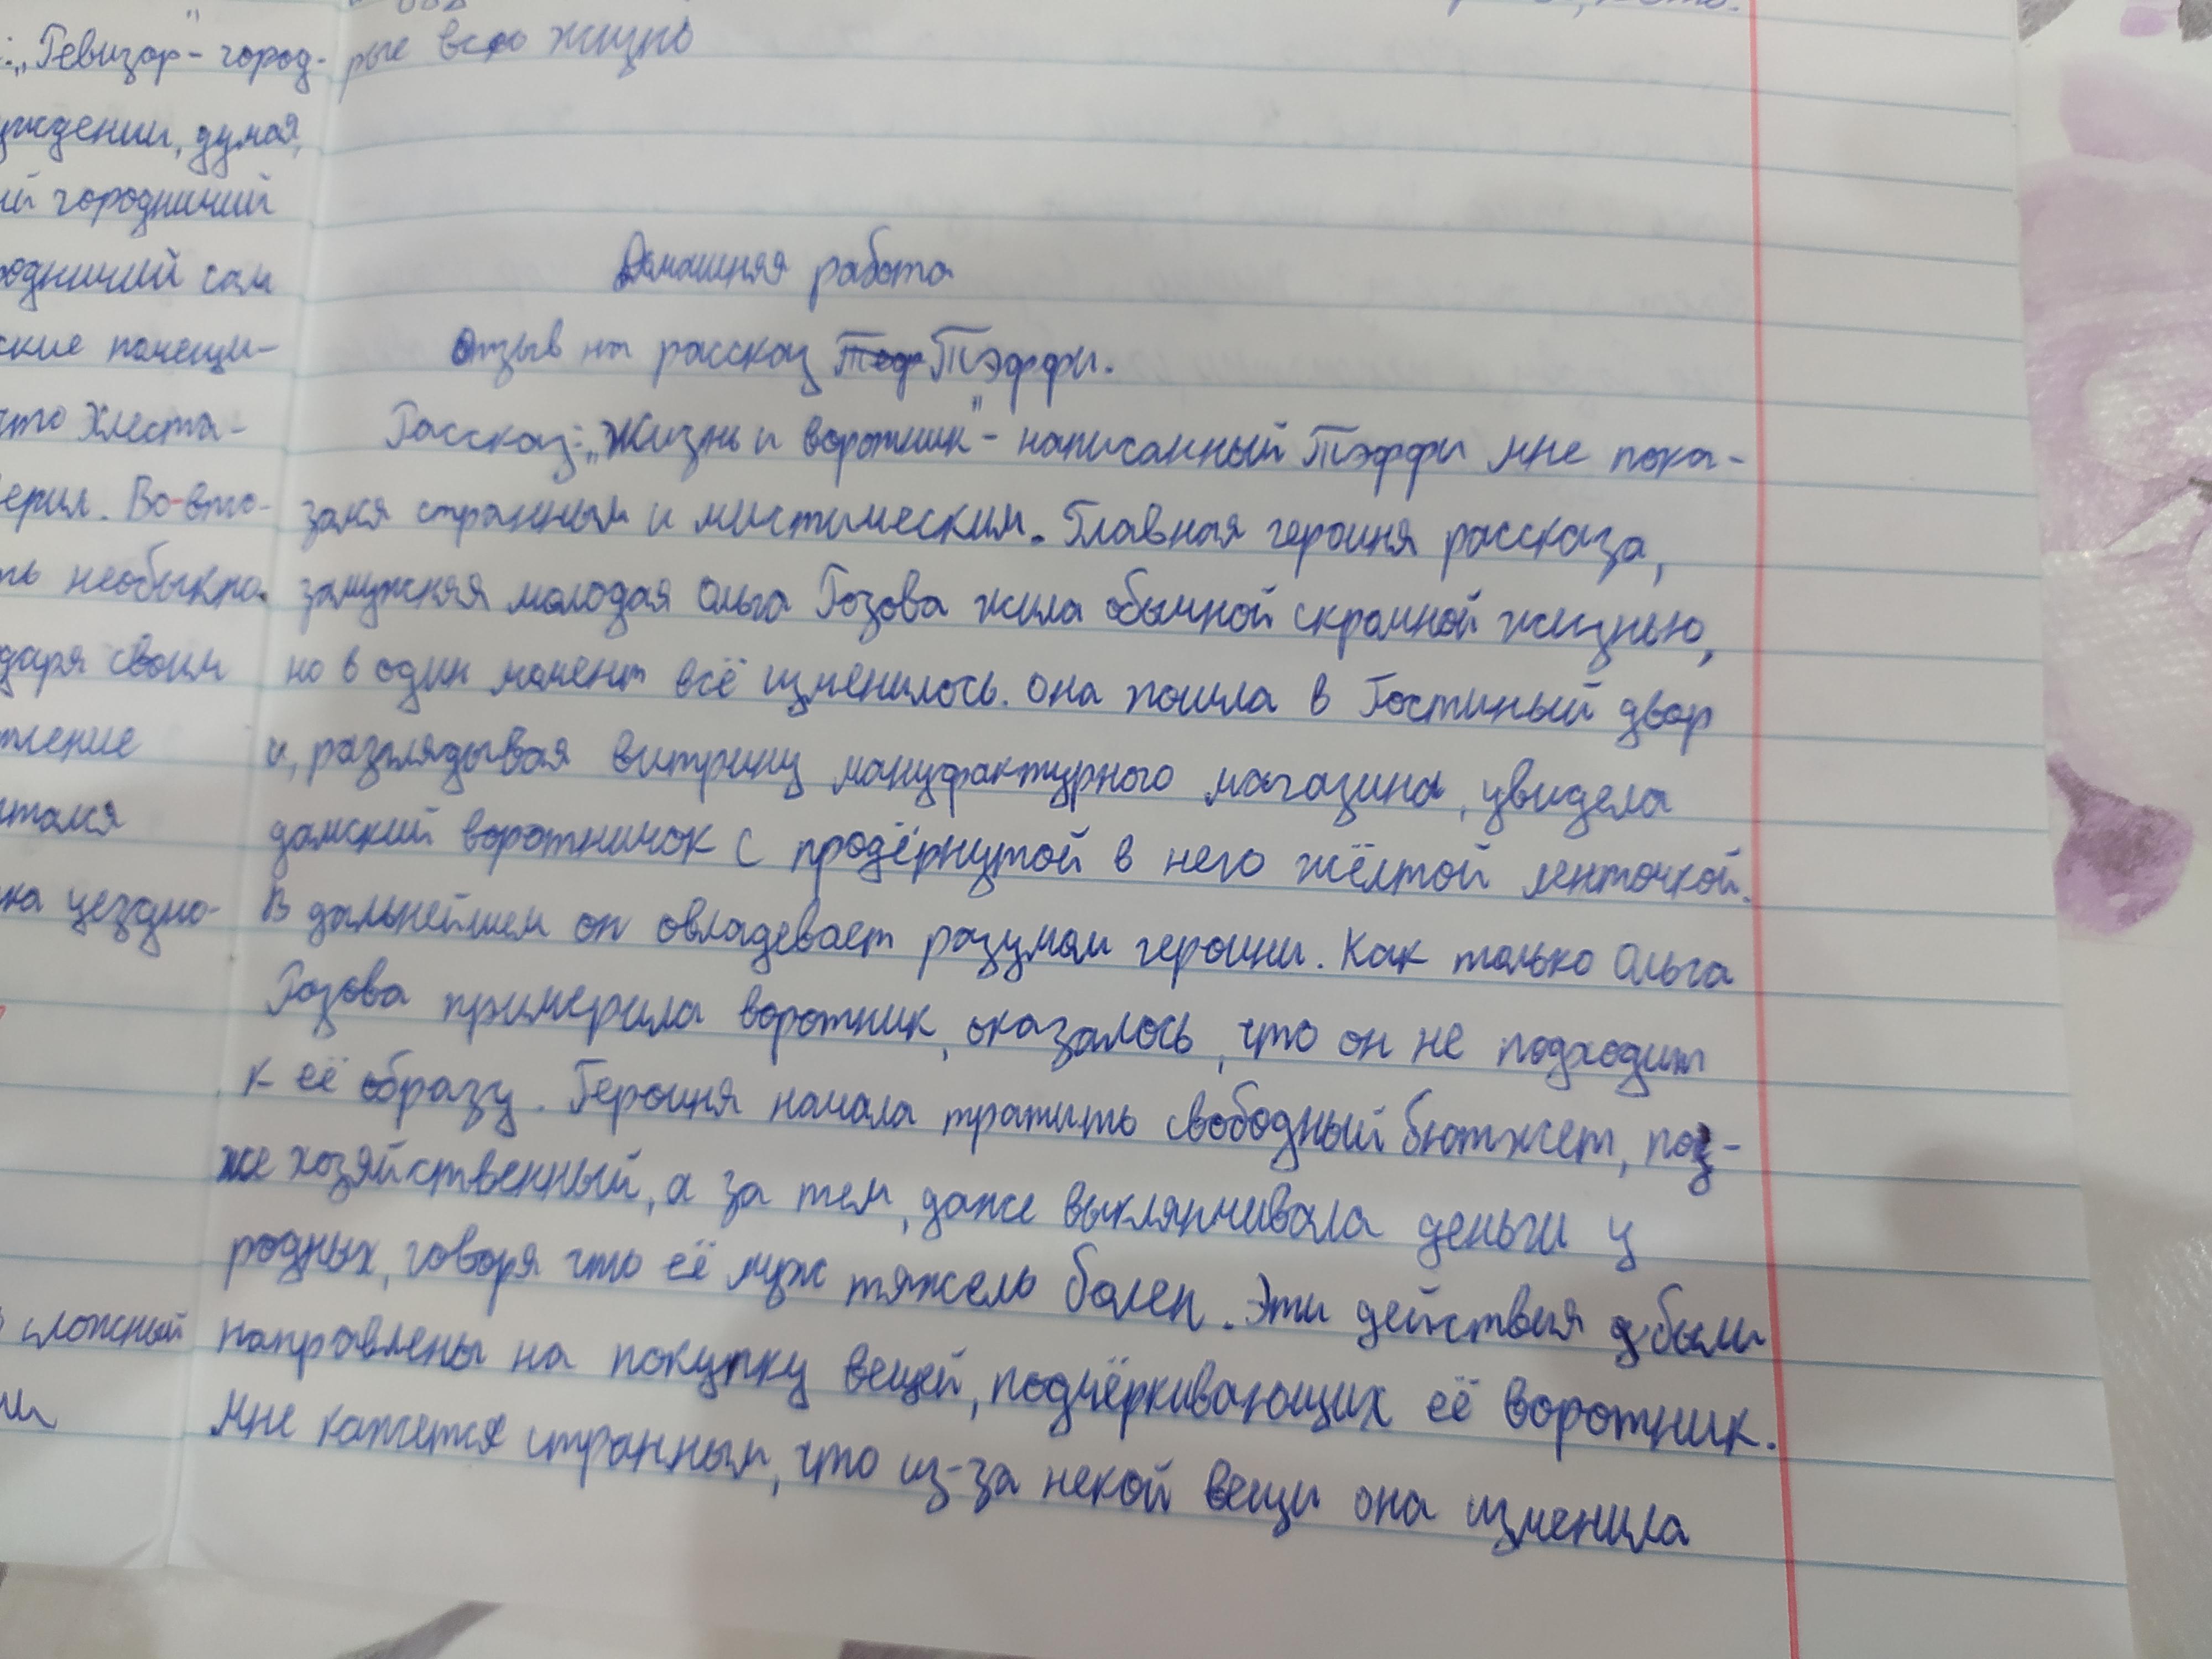 : „Ревизор" - город-
уждении, думая,
ий городничий
родничий сам
ские помещи-
что Хлеста-
верил. Во-вто-
ть необыкно-
даря своим
тление
итался
на уездно-
сложный
ии
рые всю жизнь
Домашняя работа
Отзыв на рассказ Теф Тэффи.
Рассказ: „Жизнь и воротник" - написанный Тэффи мне пока-
зался странным и мистическим. Главная героиня рассказа,
замужняя молодая Ольга Розова жила обычной скромной жизнью,
но в один момент всё изменилось. Она пошла в Гостиный двор
и, разглядывая витрину мануфактурного магазина, увидела
дамский воротничок с продёрнутой в него жёлтой ленточкой.
В дальнейшем он овладевает разумом героини. Как только Ольга
Розова примерила воротник, оказалось, что он не подходит
к её образу. Героиня начала тратить свободный бютжет, поз-
же хозяйственный, а за тем, даже выклянчивала деньги у
родных, говоря что её муж тяжело болен. Эти действия были
направлены на покупку вещей, подчёркивающих её воротник.
Мне кажется странным, что из-за некой вещи она изменила